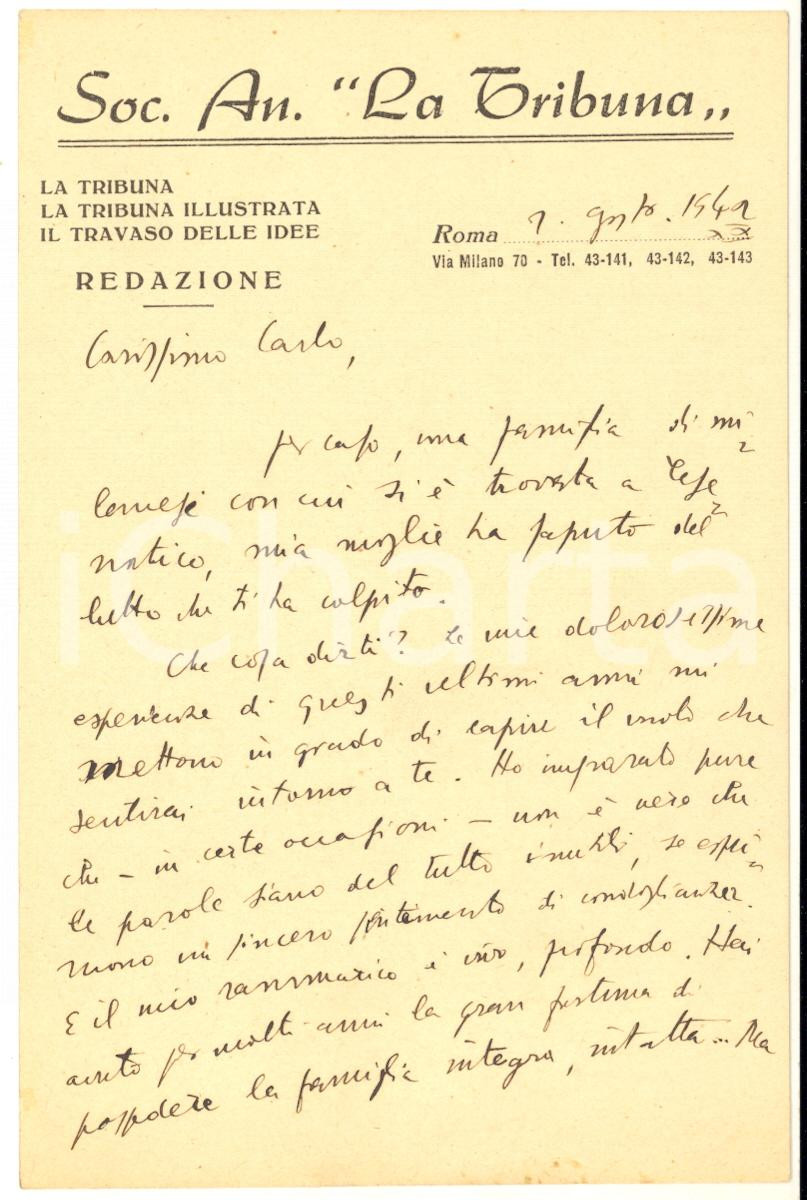 Soc. An. "La Tribuna„
LA TRIBUNA
LA TRIBUNA ILLUSTRATA
IL TRAVASO DELLE IDEE
REDAZIONE
Roma agosto. 1942
XX
Via Milano 70 - Tel. 43-141, 43-142, 43-143
Carissimo Carlo,
per caso, una famiglia di mi=
lanesi con cui si è trovata a Cese=
natico, mia moglie ha saputo del
lutto che ti ha colpito.
Che cosa dirti? Le mie dolorosissime
esperienze di questi ultimi anni mi
mettono in grado di capire il vuoto che
sentirai intorno a te. Ho imparato pure
che - in certe occasioni - non è vero che
le parole siano del tutto inutili, se espri=
mono un sincero sentimento di condoglianza.
E il mio rammarico è vivo, profondo. Hai
avuto per molti anni la gran fortuna di
possedere la famiglia integra, intatta... Ma
iCharta